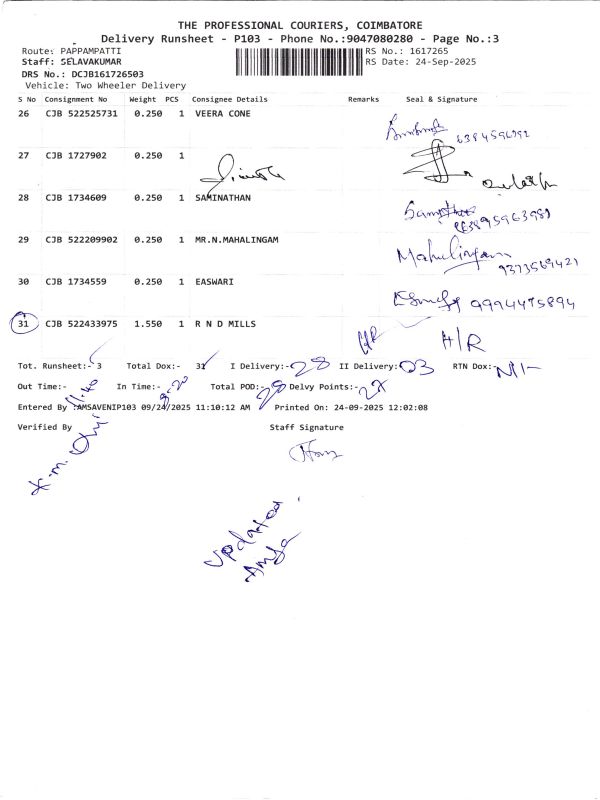 THE PROFESSIONAL COURIERS, COIMBATORE
Delivery Runsheet - P103 - Phone No.:9047080280 - Page No.:3
Route: PAPPAMPATTI RS No.: 1617265
Staff: SELAVAKUMAR RS Date: 24-Sep-2025
DRS No.: DCJB161726503
Vehicle: Two Wheeler Delivery
S No Consignment No Weight PCS Consignee Details Remarks Seal & Signature
26 CJB 522525731 0.250 1 VEERA CONE
6384596992
27 CJB 1727902 0.250 1
28 CJB 1734609 0.250 1 SAMINATHAN
29 CJB 522209902 0.250 1 MR.N.MAHALINGAM Mahalingam
9373569421
30 CJB 1734559 0.250 1 EASWARI
9994475894
31 CJB 522433975 1.550 1 R N D MILLS H/R
Tot. Runsheet:- 3 Total Dox:- 31 I Delivery:- 28 II Delivery: 03 RTN Dox:- Nil
Out Time:- 11.40 In Time:- Total POD:- 28 Delvy Points:-
Entered By :AMSAVENIP103 09/24/2025 11:10:12 AM Printed On: 24-09-2025 12:02:08
Verified By Staff Signature
updated